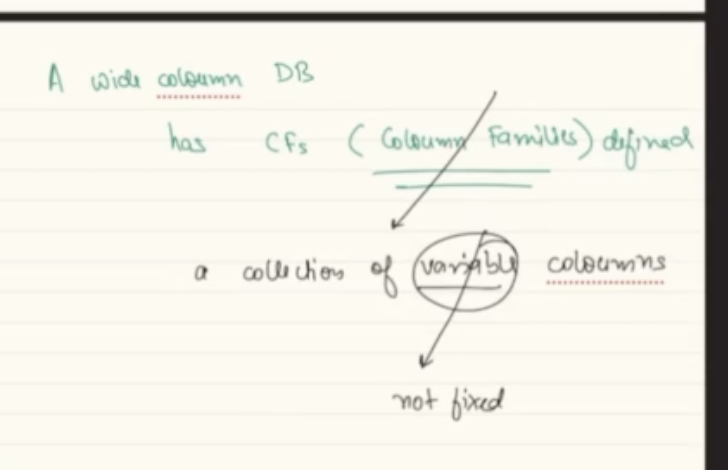 A wide coloumn DB
has CFs (Coloumn Families) defined
a collection of variable coloumns
not fixed